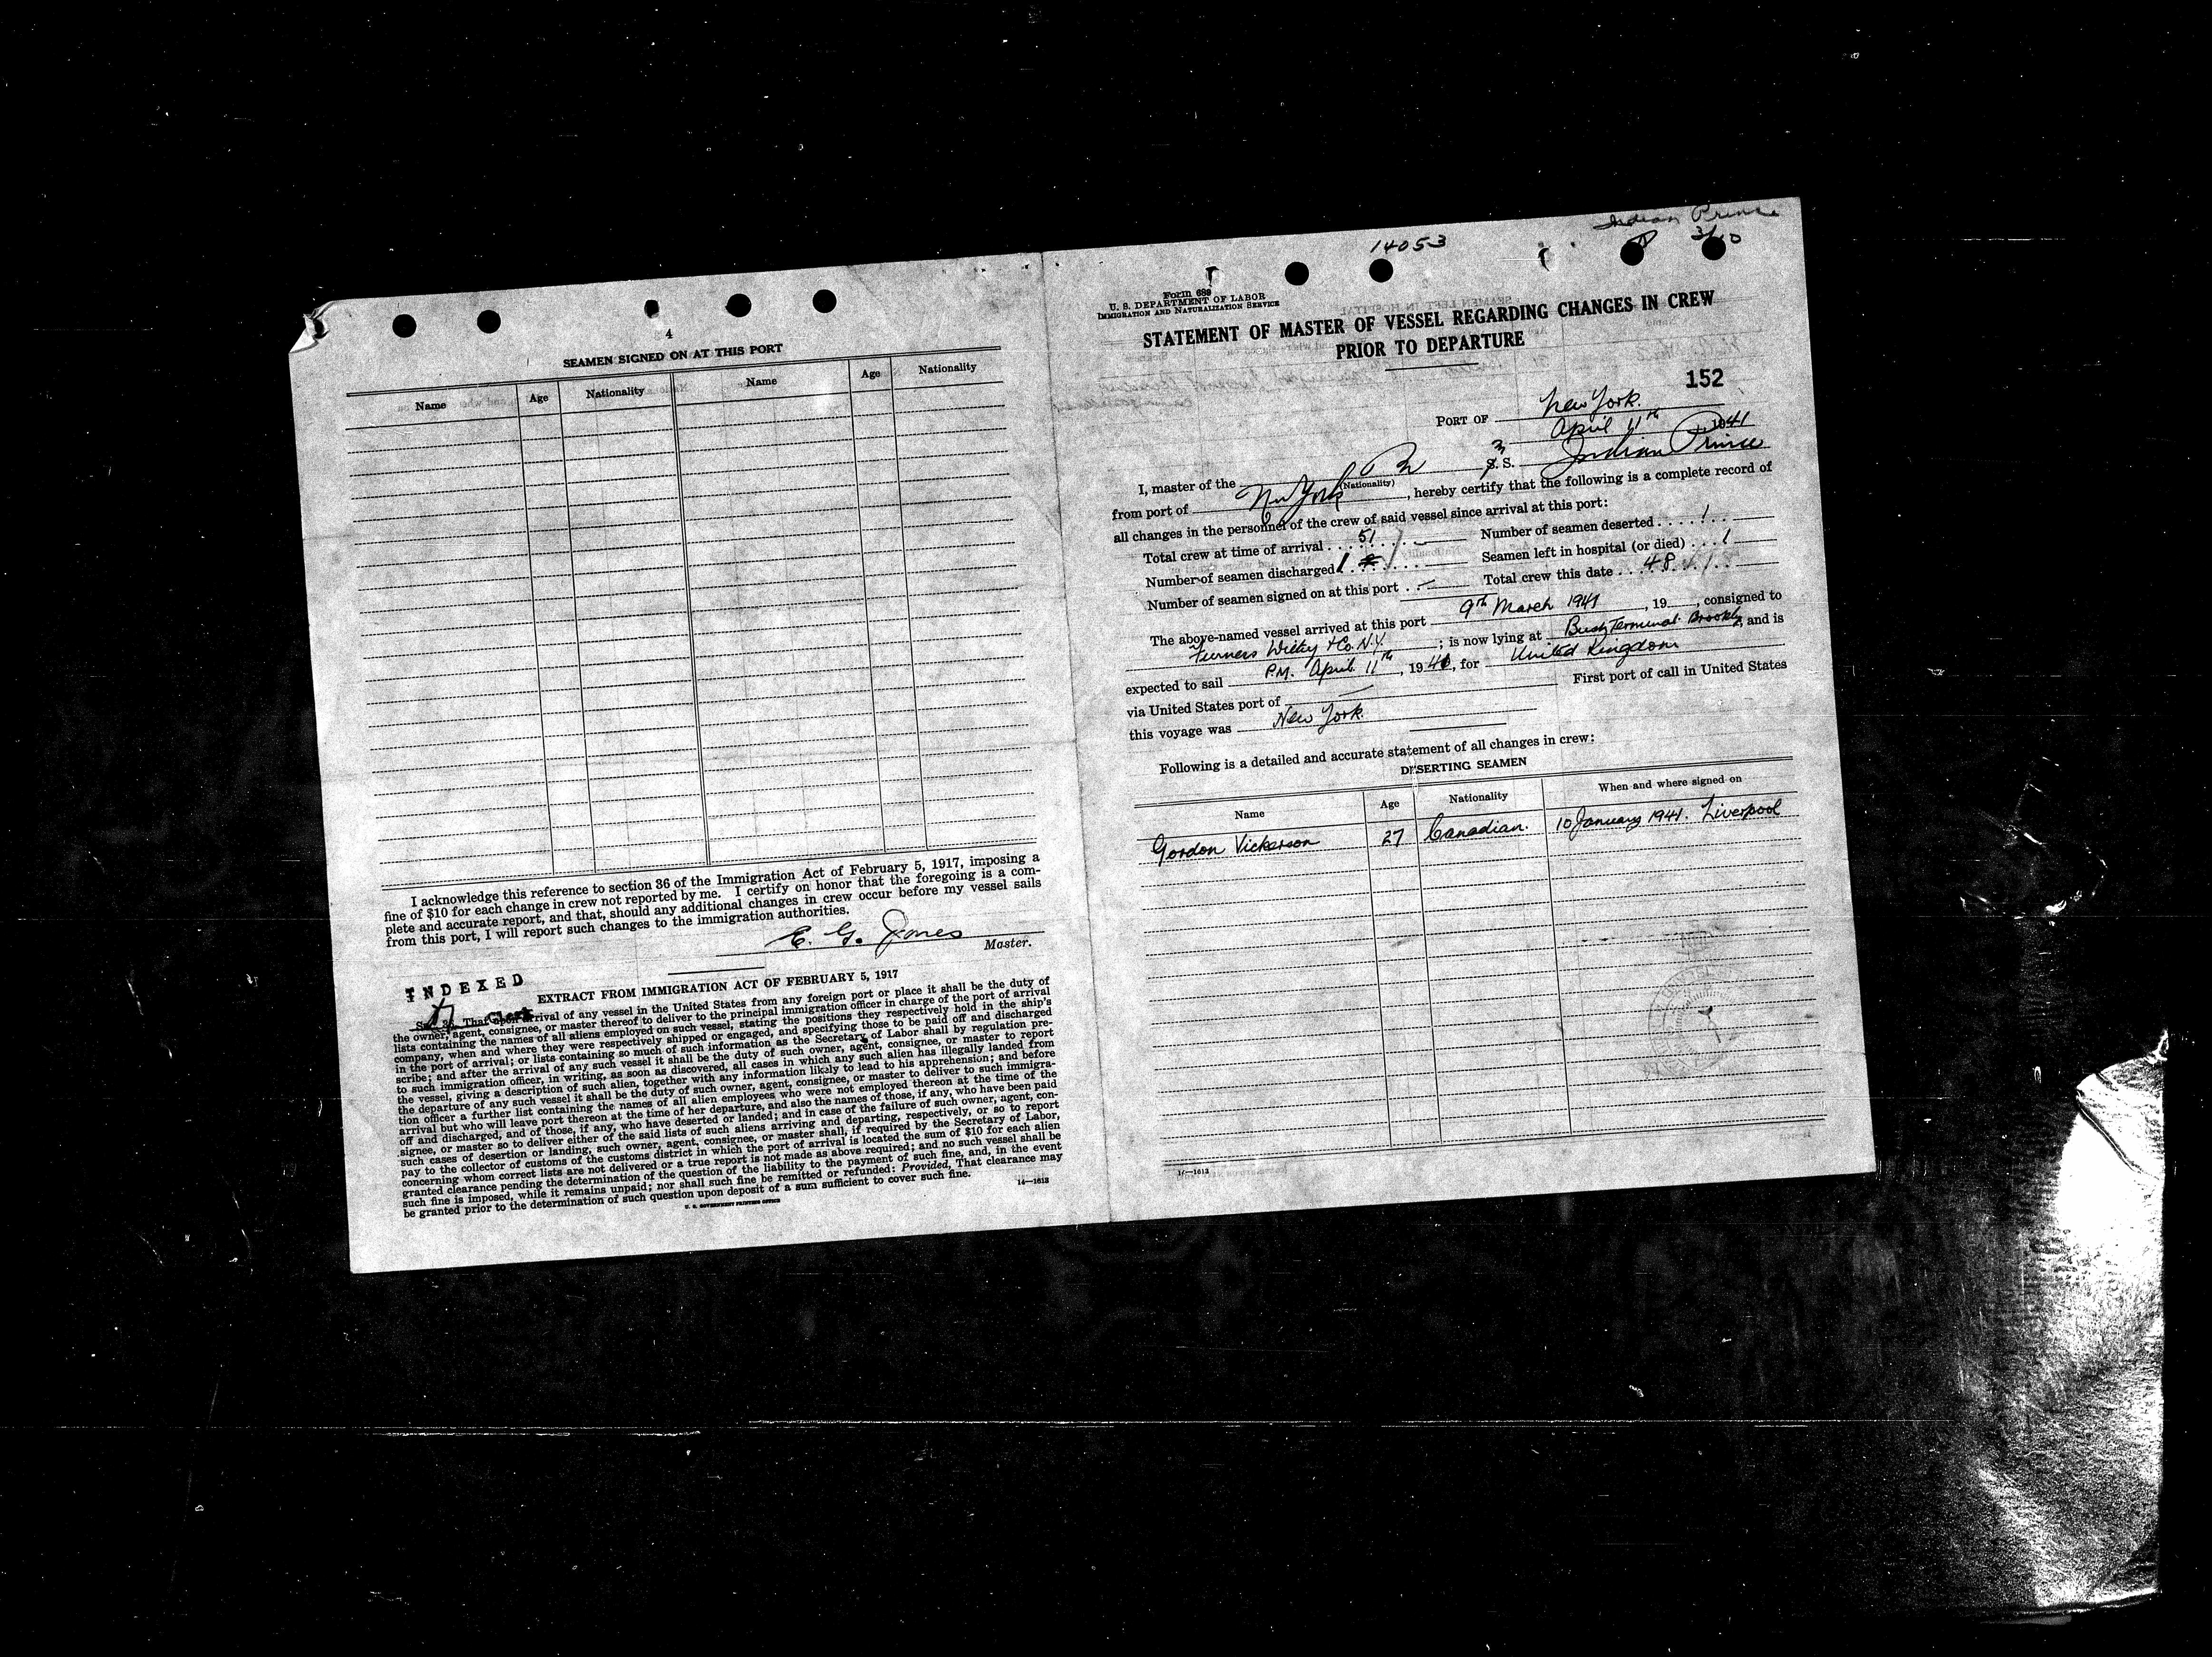 4
SEAMEN SIGNED ON AT THIS PORT
Name Age Nationality Name Age Nationality
I acknowledge this reference to section 36 of the Immigration Act of February 5, 1917, imposing a
fine of $10 for each change in crew not reported by me. I certify on honor that the foregoing is a com-
plete and accurate report, and that, should any additional changes in crew occur before my vessel sails
from this port, I will report such changes to the immigration authorities.
E. G. Jones
Master.
INDEXED
EXTRACT FROM IMMIGRATION ACT OF FEBRUARY 5, 1917
Clerk
That upon arrival of any vessel in the United States from any foreign port or place it shall be the duty of
the owner, agent, consignee, or master thereof to deliver to the principal immigration officer in charge of the port of arrival
lists containing the names of all aliens employed on such vessel, stating the positions they respectively hold in the ship's
company, when and where they were respectively shipped or engaged, and specifying those to be paid off and discharged
in the port of arrival; or lists containing so much of such information as the Secretary of Labor shall by regulation pre-
scribe; and after the arrival of any such vessel it shall be the duty of such owner, agent, consignee, or master to report
to such immigration officer, in writing, as soon as discovered, all cases in which any such alien has illegally landed from
the vessel, giving a description of such alien, together with any information likely to lead to his apprehension; and before
the departure of any such vessel it shall be the duty of such owner, agent, consignee, or master to deliver to such immigra-
tion officer a further list containing the names of all alien employees who were not employed thereon at the time of the
arrival but who will leave port thereon at the time of her departure, and also the names of those, if any, who have been paid
off and discharged, and of those, if any, who have deserted or landed; and in case of the failure of such owner, agent, con-
signee, or master so to deliver either of the said lists of such aliens arriving and departing, respectively, or so to report
such cases of desertion or landing, such owner, agent, consignee, or master shall, if required by the Secretary of Labor,
pay to the collector of customs of the customs district in which the port of arrival is located the sum of $10 for each alien
concerning whom correct lists are not delivered or a true report is not made as above required; and no such vessel shall be
granted clearance pending the determination of the question of the liability to the payment of such fine, and, in the event
such fine is imposed, while it remains unpaid; nor shall such fine be remitted or refunded: Provided, That clearance may
be granted prior to the determination of such question upon deposit of a sum sufficient to cover such fine.
14—1613
U. S. GOVERNMENT PRINTING OFFICE
Indian Prince
3/10
14053
Form 689
U. S. DEPARTMENT OF LABOR
IMMIGRATION AND NATURALIZATION SERVICE
STATEMENT OF MASTER OF VESSEL REGARDING CHANGES IN CREW
PRIOR TO DEPARTURE
152
PORT OF New York.
April 11th, 1941
I, master of the Br (Nationality) S. S. Indian Prince
from port of New York, hereby certify that the following is a complete record of
all changes in the personnel of the crew of said vessel since arrival at this port:
Total crew at time of arrival 51 Number of seamen deserted 1
Number of seamen discharged 1 Seamen left in hospital (or died) 1
Number of seamen signed on at this port — Total crew this date 48
The above-named vessel arrived at this port 9th March 1941, 19, consigned to
Furness Withy & Co. N.Y.; is now lying at Bush Terminal Brooklyn, and is
expected to sail P.M. April 11th, 1941, for United Kingdom
via United States port of — First port of call in United States
this voyage was New York.
Following is a detailed and accurate statement of all changes in crew:
DESERTING SEAMEN
Name Age Nationality When and where signed on
Gordon Vickerson 27 Canadian. 10 January 1941. Liverpool
14—1613